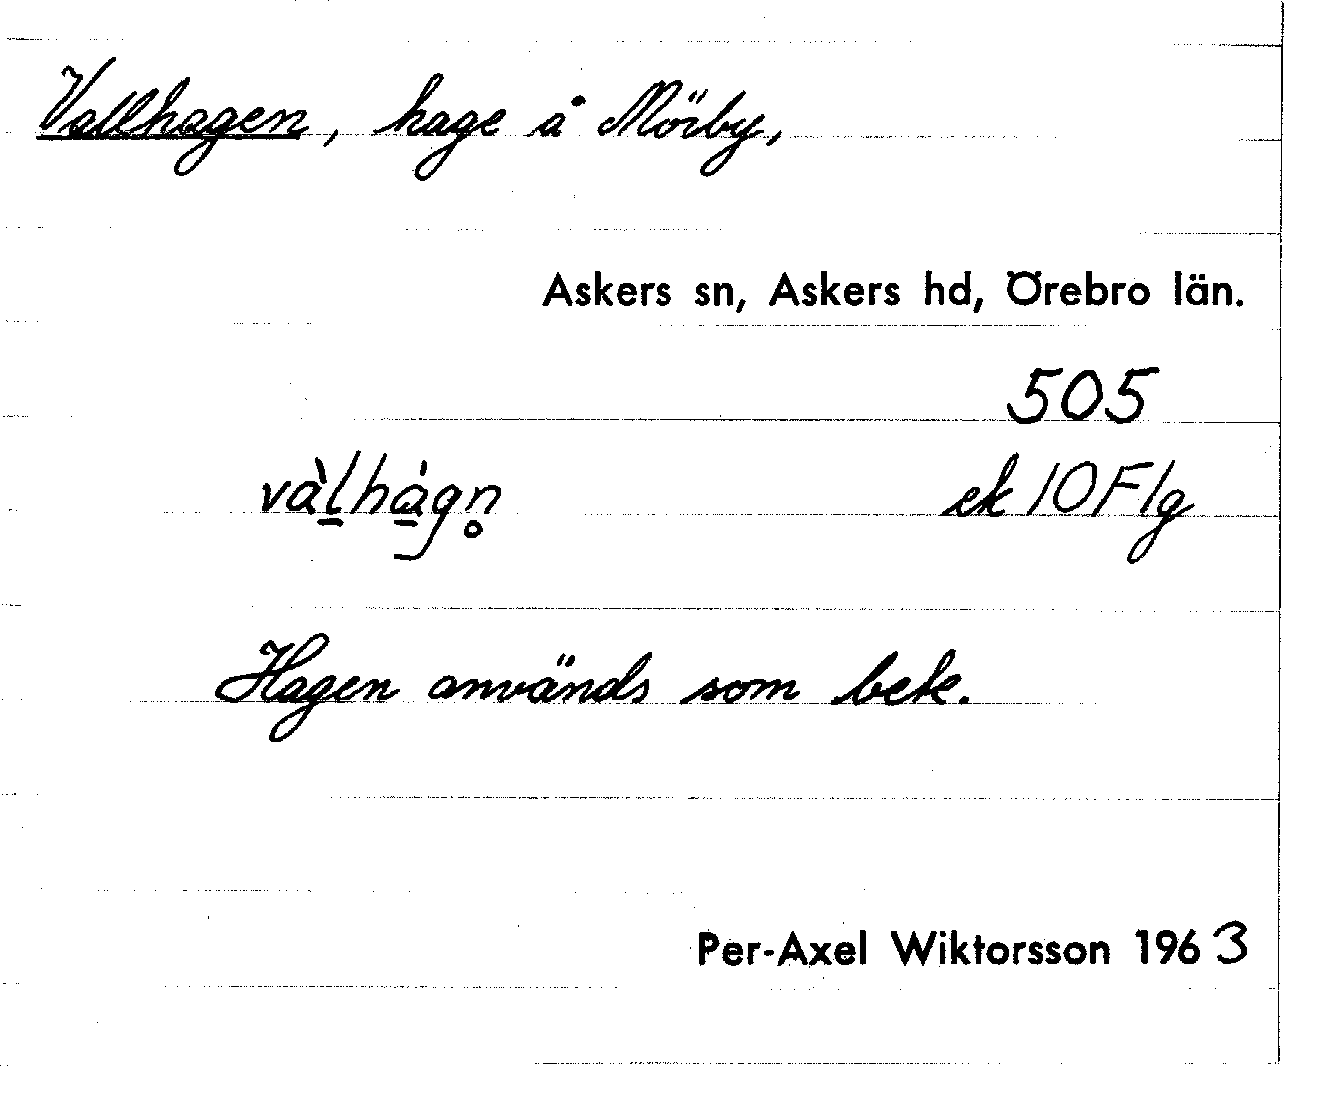 Vallhagen, hage å Mörby,
Askers sn, Askers hd, Örebro län.
505
vàl̠hà̠gn̥ ek 10 F 1g
Hagen används som bete.
Per-Axel Wiktorsson 1963